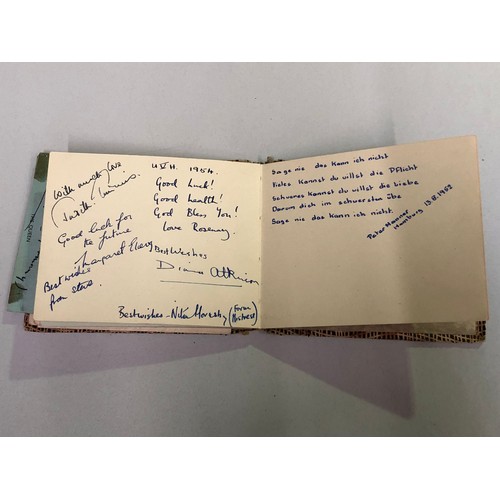 With much love
U.V.H. 1954.
Good Luck!
Good health!
God Bless You!
Love Rosemary.
Good luck for
the future
Margaret
Best wishes
from
Best Wishes
Diana Atkinson
Best wishes - Nita
(Form
Mistress)
Sage nie das kann ich nicht
Vieles kannst du willst die Pflicht
Schweres kannst du will's die Liebe
Darum dich im schwersten übe
Sage nie das kann ich nicht.
Peter Manner
Hamburg 13.8.1953